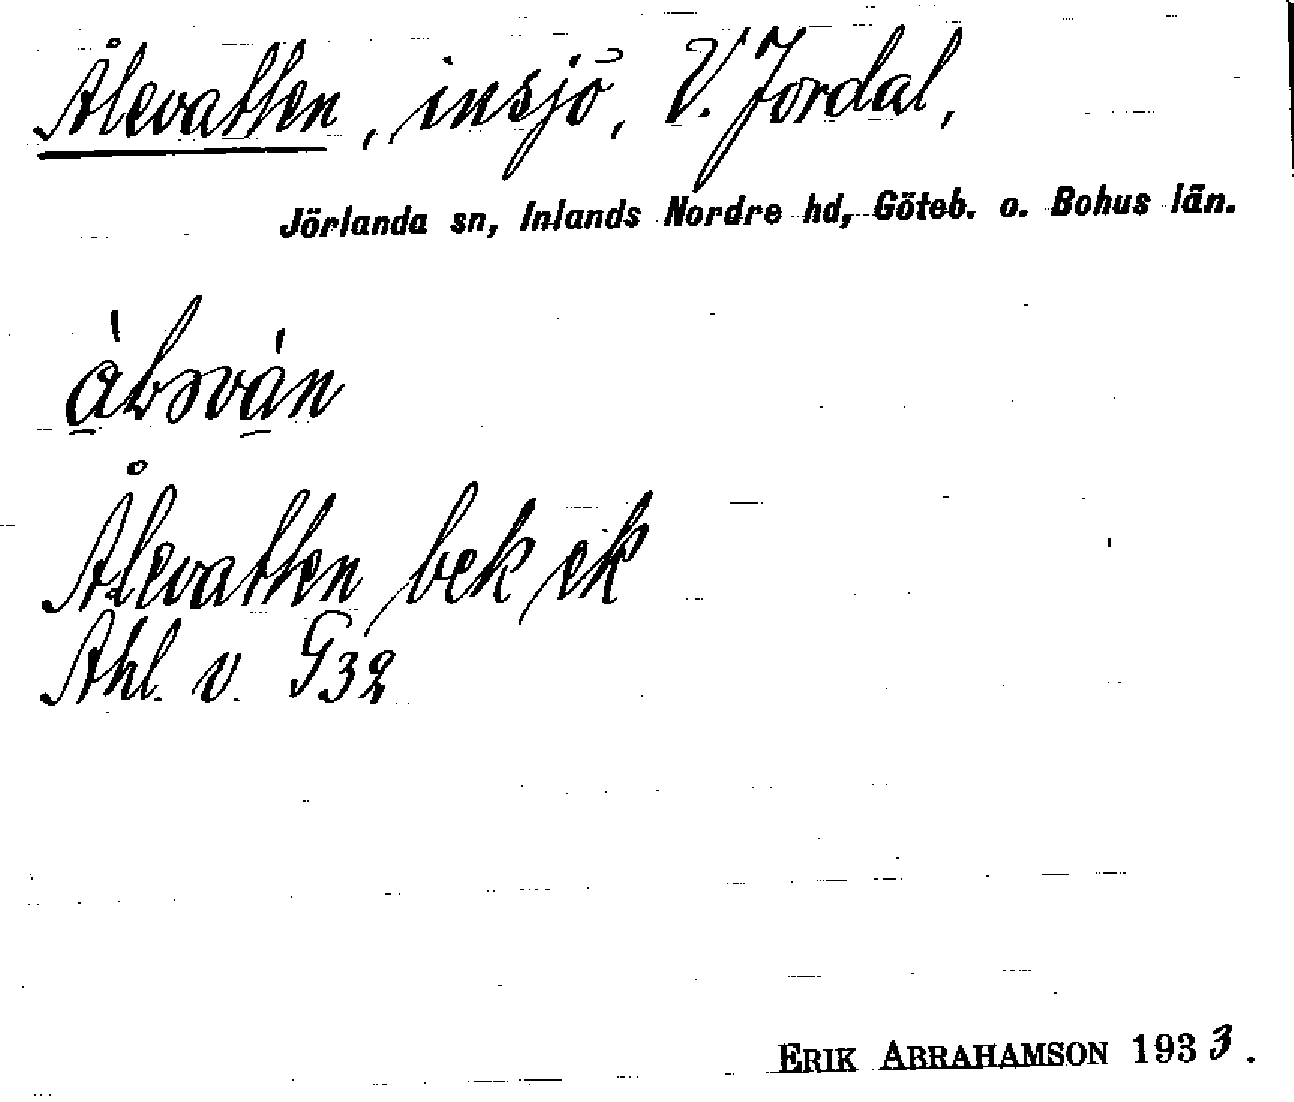 Ålevatten, insjö, V. Jordal,
Jörlanda sn, Inlands Nordre hd, Göteb. o. Bohus län.
Ålevatten bek ek
Ahl. v. G32
ERIK ABRAHAMSON 1933.